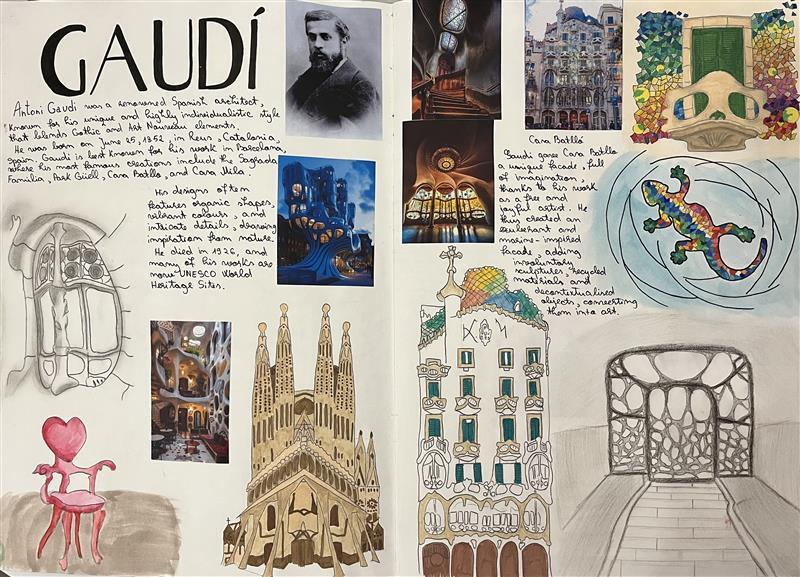 GAUDÍ
Antoni Gaudí was a renowned Spanish architect,
known for his unique and highly individualistic style
that blends Gothic and Art Nouveau elements.
He was born on June 25, 1852, in Reus, Catalonia,
Spain. Gaudí is best known for his work in Barcelona,
where his most famous creations include the Sagrada
Familia, Park Güell, Casa Batlló, and Casa Milà.
His designs often
features organic shapes,
vibrant colours, and
intricate details, drawing
inspiration from nature.
He died in 1926, and
many of his works are
now UNESCO World
Heritage Sites.
Casa Batlló
Gaudí gave Casa Batlló
a unique façade, full
of imagination
thanks to his work
as a free and
joyful artist. He
thus created an
exuberant and
marine-inspired
façade adding
involuntary
sculptures recycled
materials and
decontextualised
objects, converting
them into art.